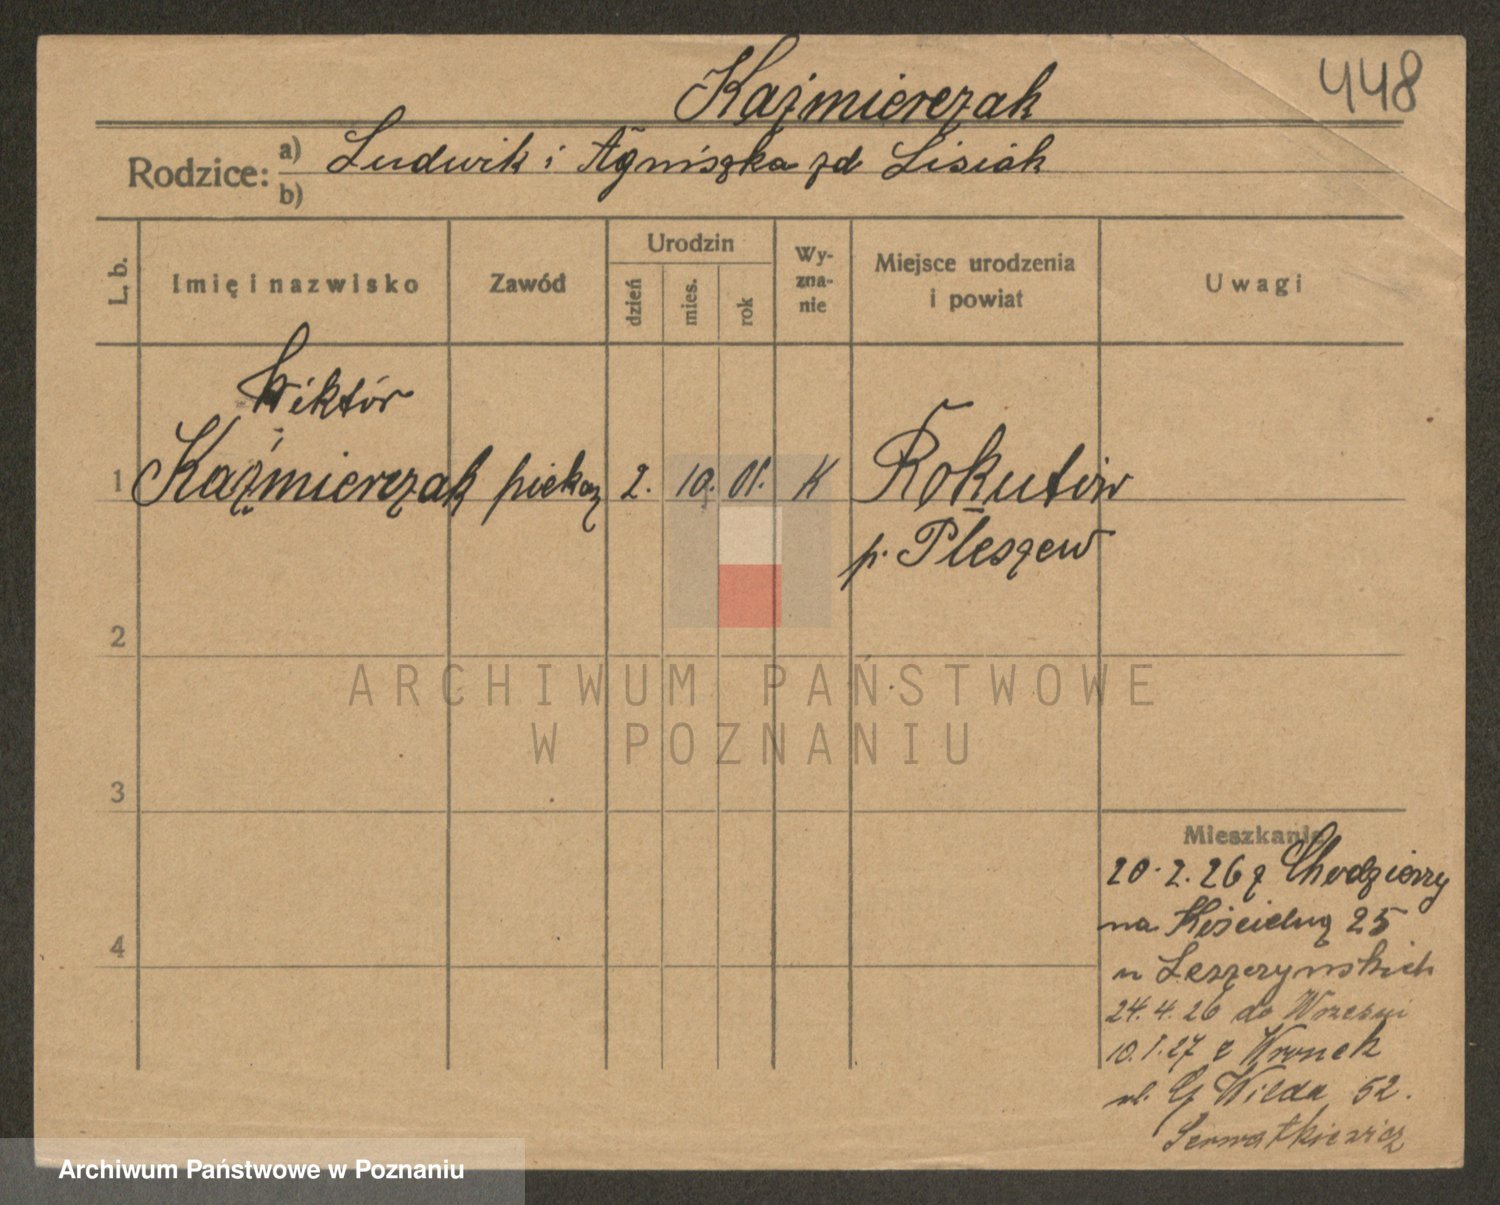 448
Kaźmierczak
Rodzice: a) Ludwik i Agniszka zd Lisiak
b)
L. b.
Imię i nazwisko
Zawód
Urodzin
dzień
mies.
rok
Wy-
zna-
nie
Miejsce urodzenia
i powiat
Uwagi
Wiktór
1 Kaźmierczak piekaz 2. 10. 01. K Rokutów
p. Pleszew
2
3
4
ARCHIWUM PAŃSTWOWE
W POZNANIU
Mieszkanie
20.2.26 z Chodzierzy
na Kościelną 25
u Leszczynskich
24.4.26 do Wrzesni
10.1.27 z Wronek
ul. G Wilda 52.
Serwatkiewicz
Archiwum Państwowe w Poznaniu